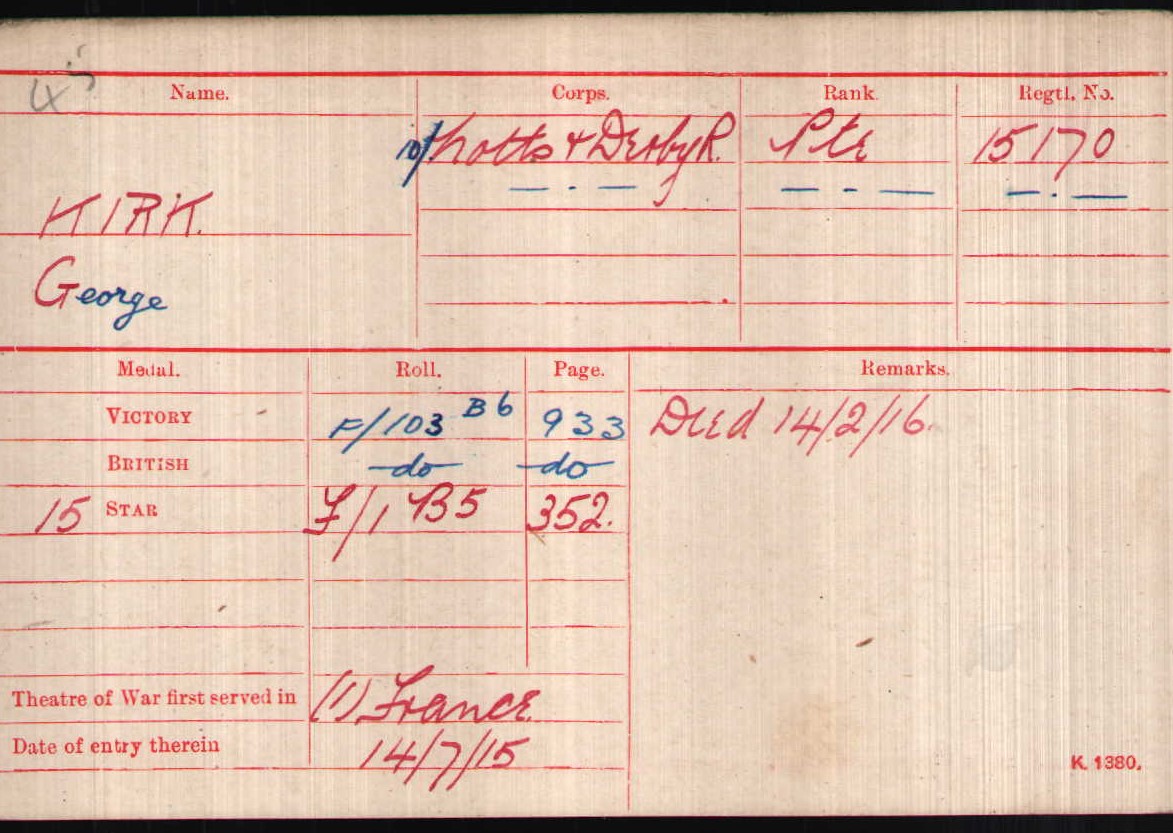 45
Name. Corps. Rank. Regtl. No.
10/Notts & Derby R. Pte 15170
— . — — - — — . —
KIRK.
George
Medal. Roll. Page. Remarks.
VICTORY F/103 B6 933 Died 14/2/16.
BRITISH —do— —do—
15 STAR F/1 B5 352.
Theatre of War first served in (1) France.
Date of entry therein 14/7/15
K. 1380.